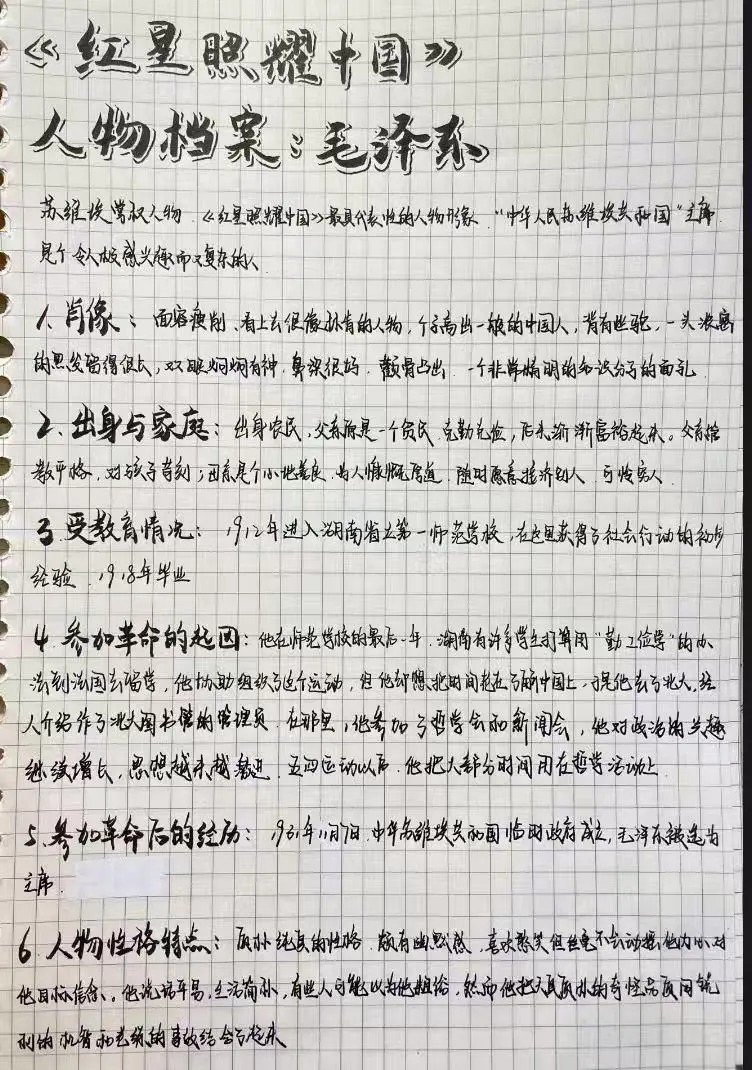 《红星照耀中国》
人物档案：毛泽东
苏维埃掌权人物.《红星照耀中国》最具代表性的人物形象."中华人民苏维埃共和国"主席
是个令人极感兴趣而又复杂的人.
1. 肖像：面容瘦削、看上去很像林肯的人物，个子高出一般的中国人，背有些驼，一头浓密
的黑发留得很长，双眼炯炯有神.鼻梁很高.颧骨凸出.一个非常精明的知识分子的面孔.
2、出身与家庭：出身农民，父亲原是一个贫民.克勤克俭，后来渐渐富裕起来。父亲管
教严格、对孩子苛刻；母亲是个心地善良、为人慷慨厚道.随时愿意接济别人.可怜穷人.
3、受教育情况：1912年进入湖南省立第一师范学校，在这里获得了社会行动的初步
经验.1918年毕业
4、参加革命的起因：他在师范学校的最后一年.湖南有许多学生打算用"勤工俭学"的办
法到法国去留学，他协助组织了这个运动，但他却想把时间花在了解中国上.于是他去了北大.经
人介绍作了北大图书馆的管理员.在那里，他参加了哲学会和新闻会，他对政治的兴趣
继续增长，思想越来越激进.五四运动以后.他把大部分时间用在哲学活动上.
5、参加革命后的经历：1931年11月7日.中华苏维埃共和国临时政府成立，毛泽东被选为
主席.
6、人物性格特点：质朴纯真的性格.颇有幽默感，喜欢憨笑但丝毫不会动摇他内心对
他目标信念。他说话平易，生活简朴，有些人可能以为他粗俗，然而他把天真质朴的奇怪品质同锐
利的机智和老练的事故结合了起来